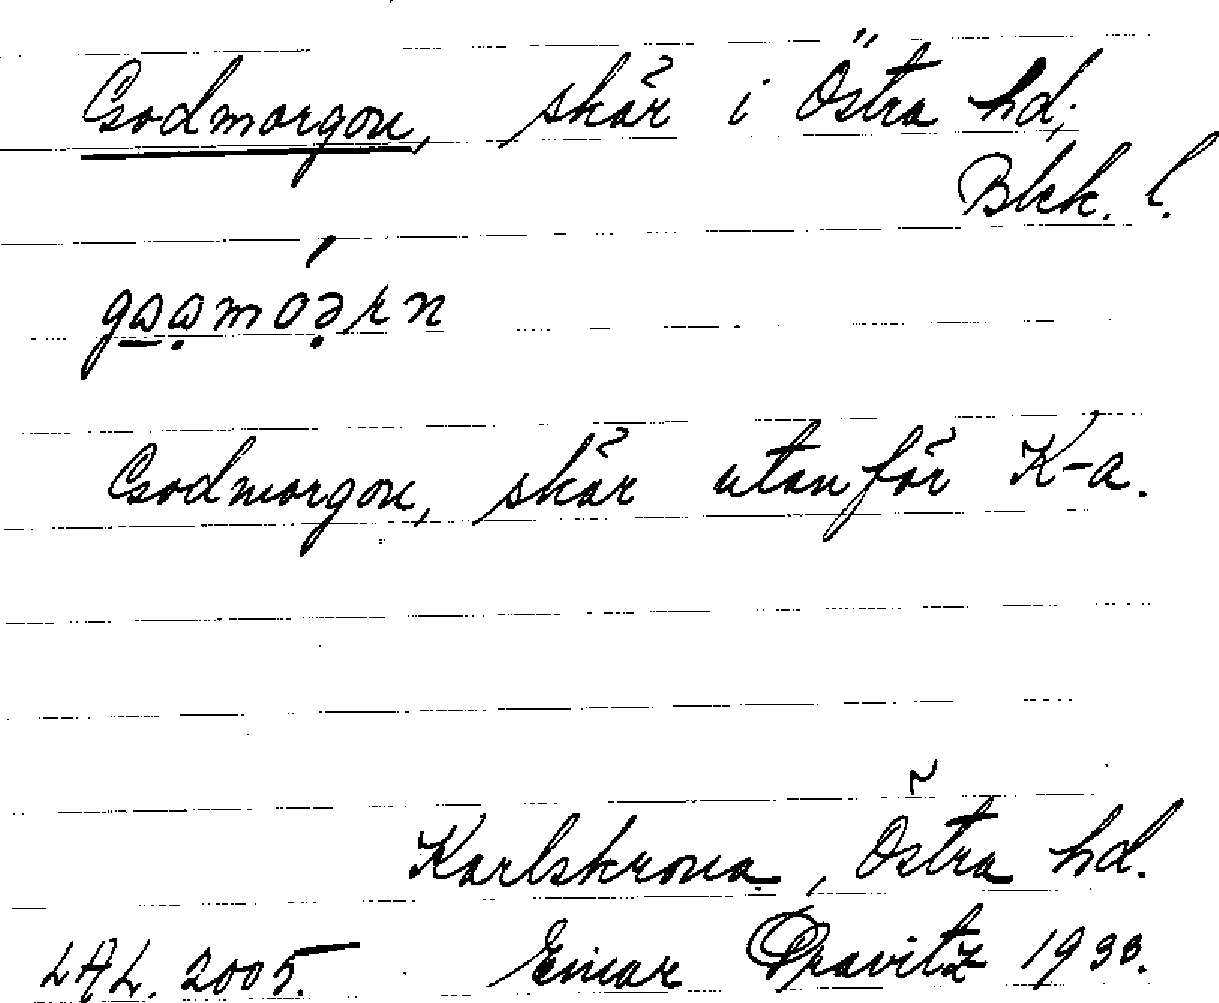 Godmorgon, skär i Östra hd;
Blek. l.
Godmorgon, skär utanför K-a.
Karlskrona, Östra hd.
LAL. 2005. Einar Pravitz 1933.